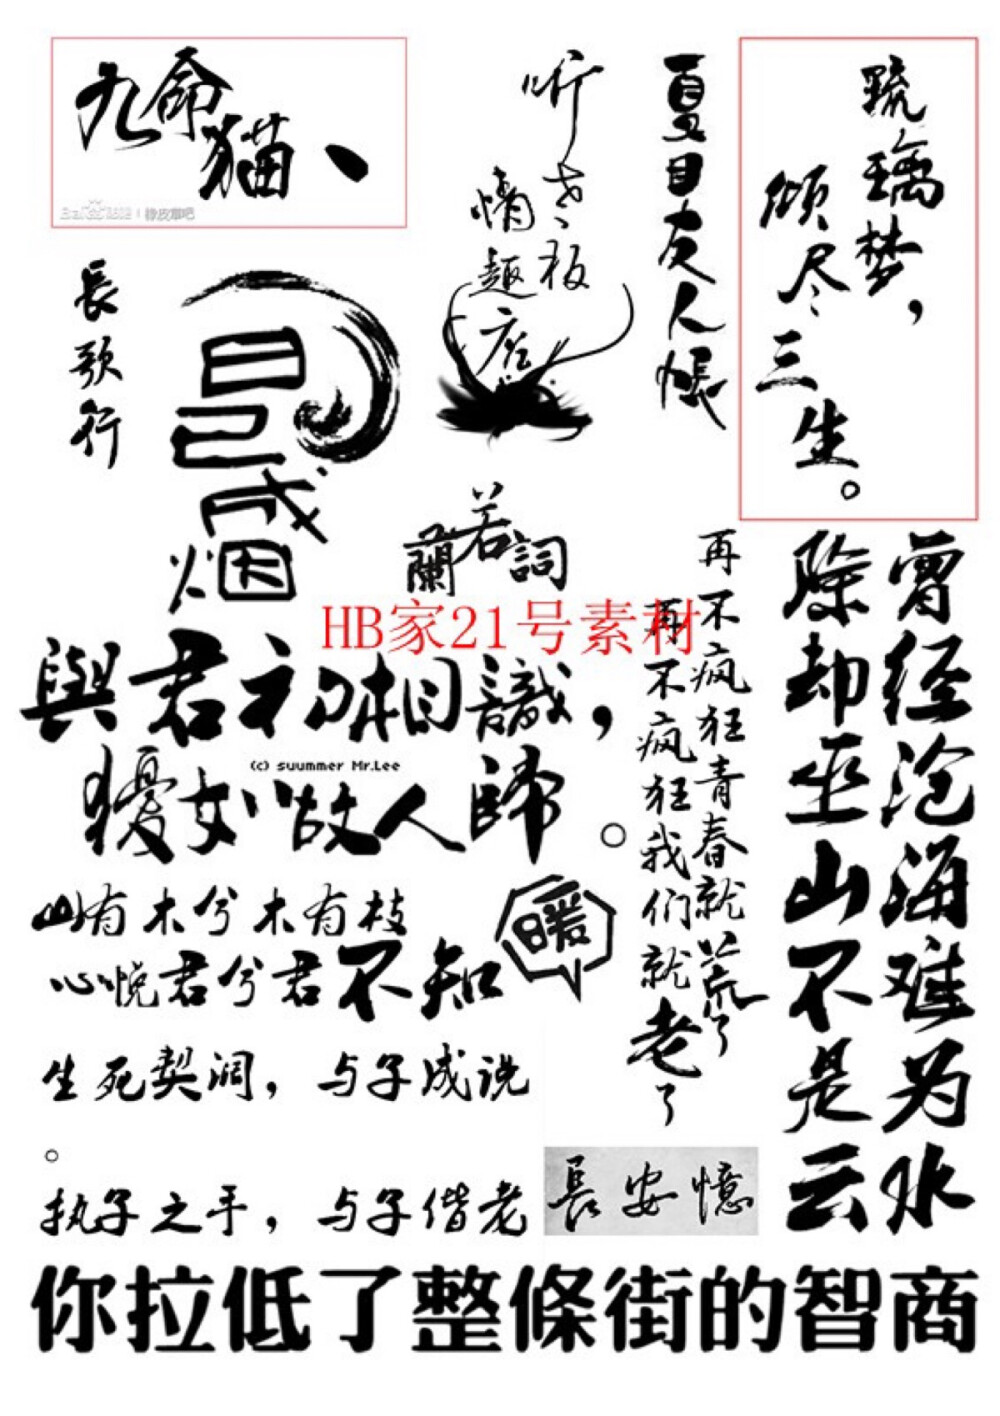 九命猫、
Bai 贴吧 | 橡皮章吧
听老板
情趣症
夏目友人帳
琉璃梦，
倾尽三生。
長歌行
昌
已成
烟
蘭若詞
HB家21号素材
再不疯狂青春就荒了
再不疯狂我们就老了
曾经沧海难为水
除却巫山不是云
與君初相識，
(c) suummer Mr.Lee
猶如故人歸。
山有木兮木有枝
心悦君兮君不知
暖
生死契阔，与子成说
。
执子之手，与子偕老
長安憶
你拉低了整條街的智商